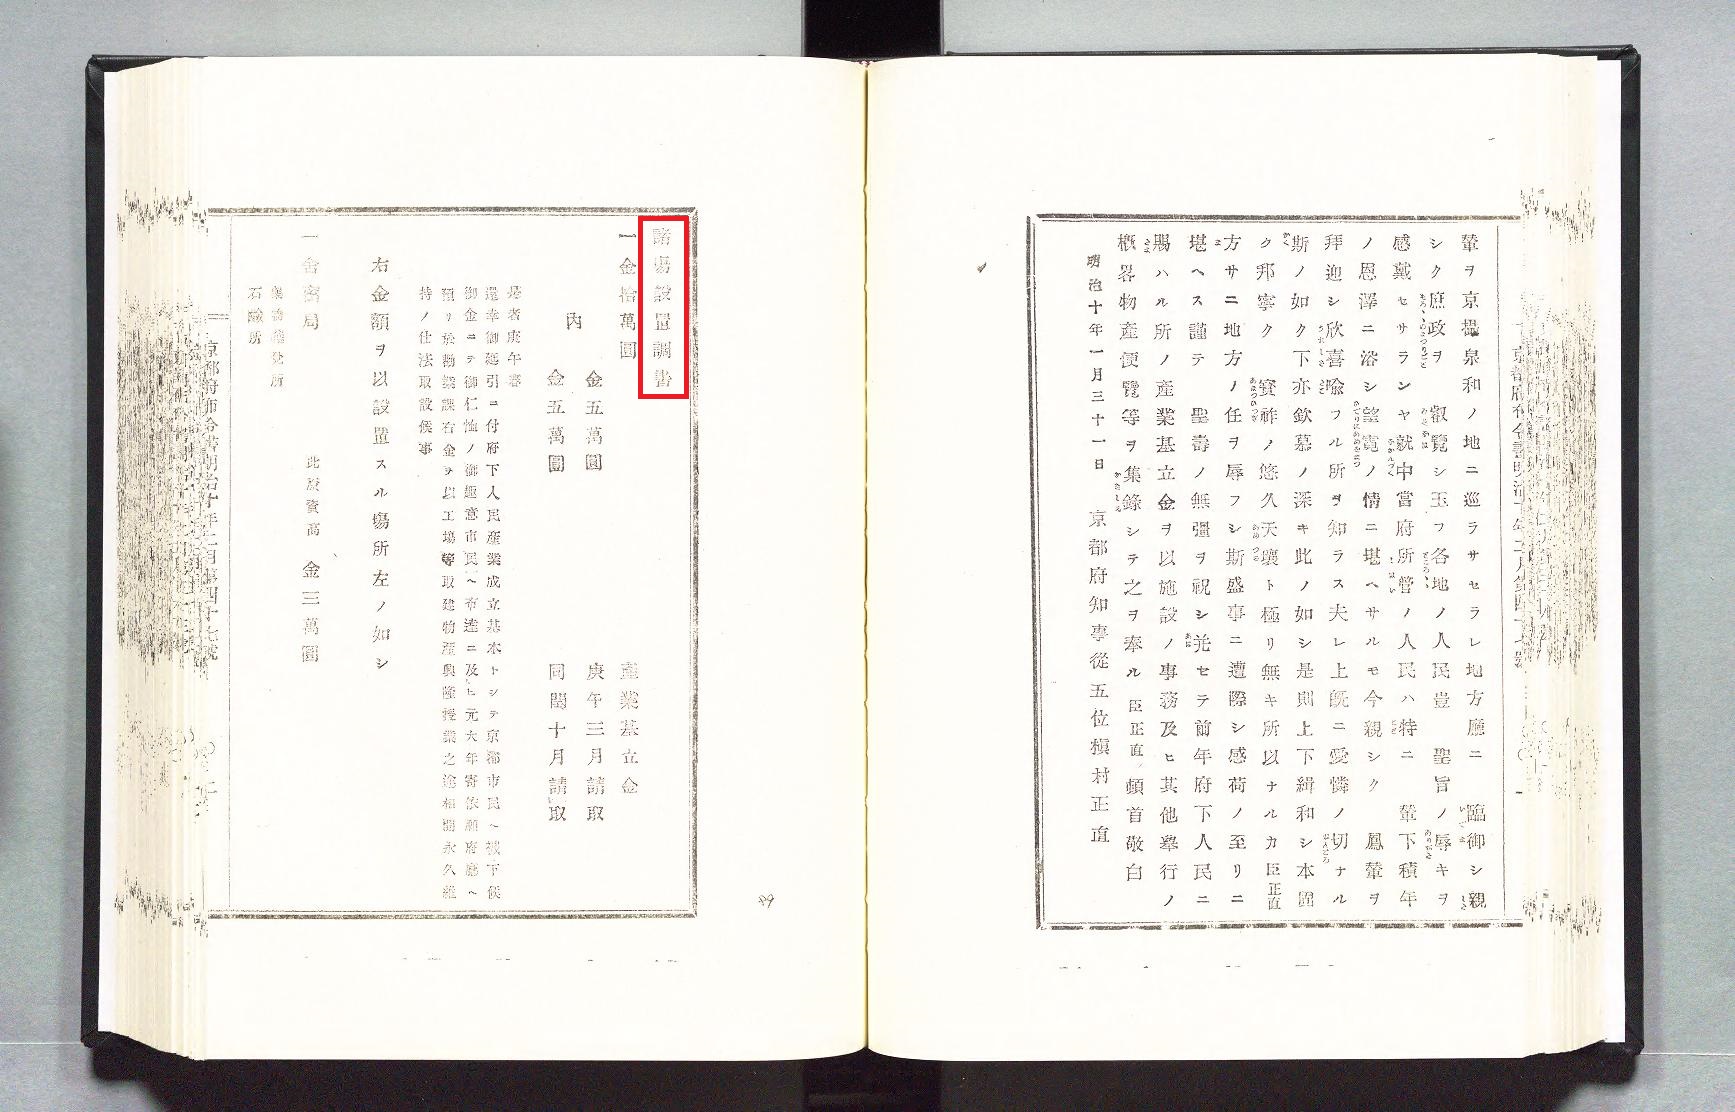 輦ヲ京攝泉和ノ地ニ巡ラサセラレ地方廳ニ 臨御シ親
シク庶政ヲ 叡覽シ玉フ各地ノ人民豈 聖旨ノ辱キヲ
感戴セサランヤ就中當府所管ノ人民ハ特ニ 輦下積年
ノ恩澤ニ浴シ望霓ノ情ニ堪ヘサルモ今親シク 鳳輦ヲ
拜迎シ欣喜喩フル所ヲ知ラス夫レ上既ニ愛憐ノ切ナル
斯ノ如ク下亦欽慕ノ深キ此ノ如シ是則上下緝和シ本固
ク邦寧ク 寳祚ノ悠久天壤ト極リ無キ所以ナルカ臣正直
方サニ地方ノ任ヲ辱フシ斯盛事ニ遭際シ感荷ノ至リニ
堪ヘス謹テ 聖壽ノ無彊ヲ祝シ并セテ前年府下人民ニ
賜ハル所ノ產業基立金ヲ以施設ノ事務及ヒ其他擧行ノ
概畧物產便覽等ヲ集錄シテ之ヲ奉ル臣正直頓首敬白
明治十年一月三十一日 京都府知事從五位槇村正直
諸場設置調書
一金拾萬圓 產業基立金
內 金五萬圓 庚午三月請取
金五萬圓 同閏十月請取
是者庚午春
還幸御延引ニ付府下人民產業成立基本トシテ京都市民ヘ被下候
御金ニテ御仁恤ノ御趣意市民ヘ布達ニ及ヒ元大年寄依願府廳ヘ
預リ於勸業課右金ヲ以工場等取建物產興隆授業之途相開永久維
持ノ仕法取設候事
右金額ヲ以設置スル塲所左ノ如シ
一舍密局 此原資高 金三萬圓
石鹼所
京都府布令書明治十年二月第四十七號